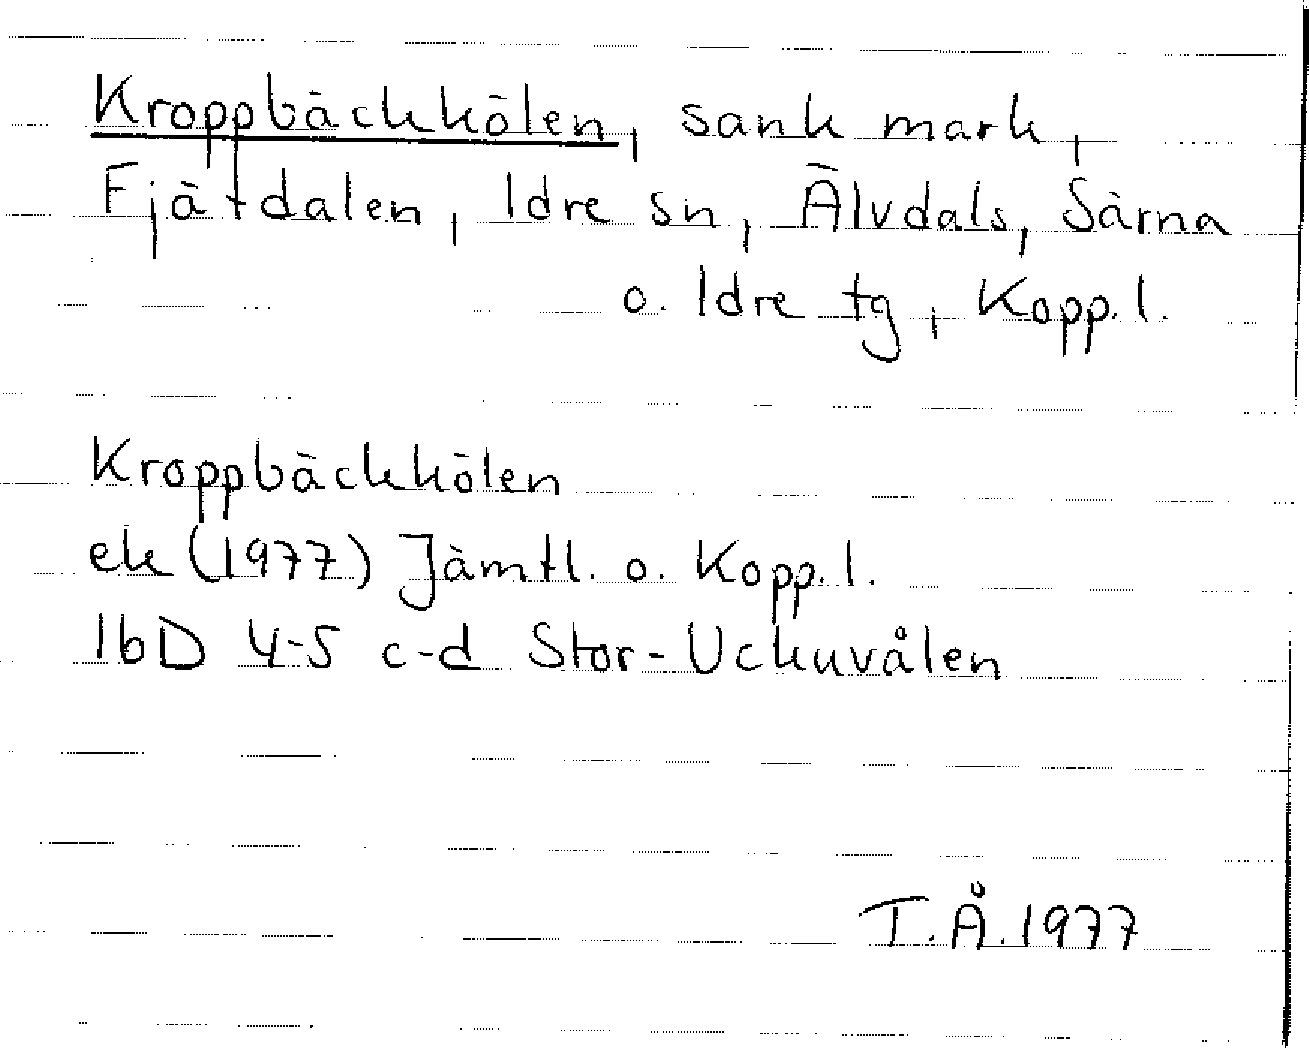 Kroppbäckkölen, sank mark,
Fjätdalen, Idre sn, Älvdals, Särna
o. Idre tg, Kopp. l.
Kroppbäckkölen
ek (1977) Jämtl. o. Kopp. l.
16D 4-5 c-d Stor-Uckuvålen
T.Å. 1977